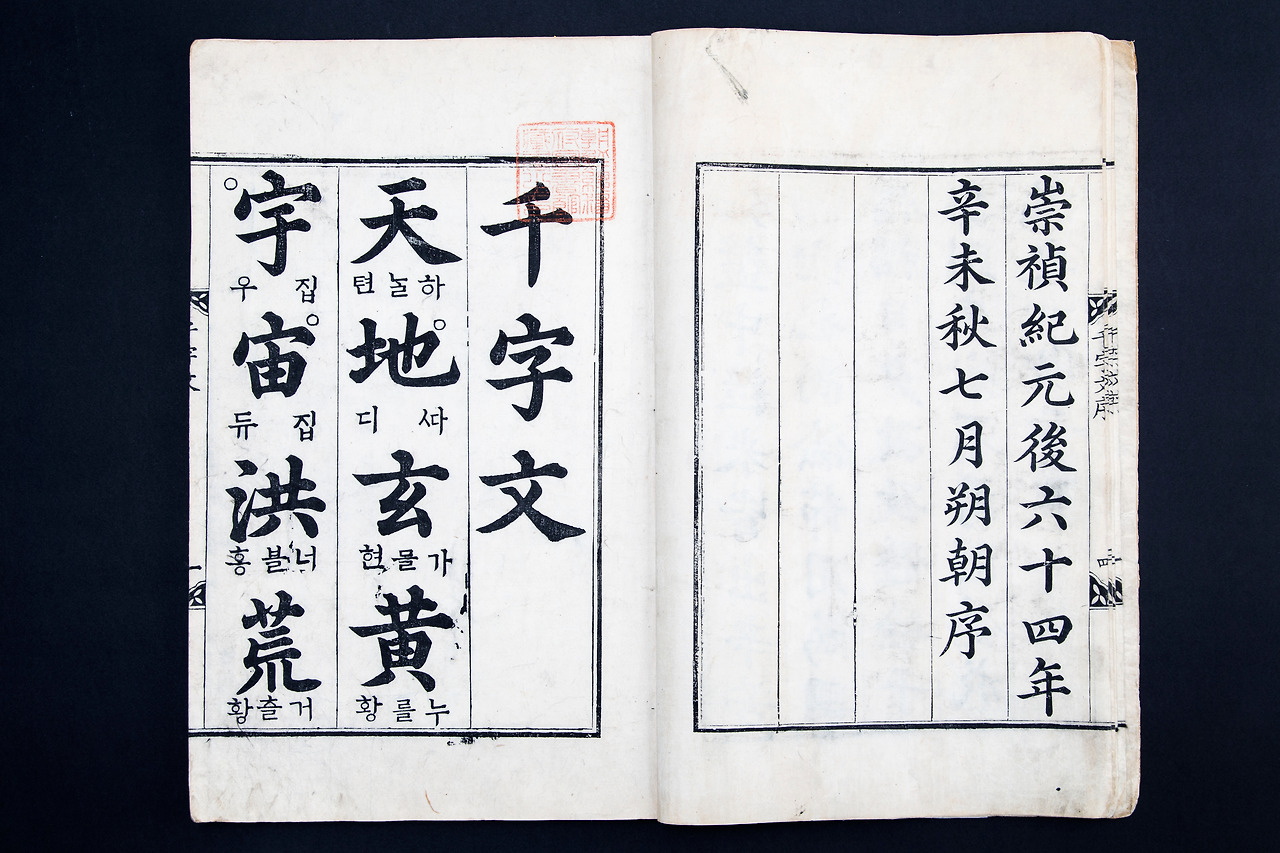 崇禎紀元後六十四年
辛未秋七月朔朝序
千字文序
千字文
天
하ᄂᆞᆯ 텬
地
ᄯᅡ 디
玄
가믈 현
黄
누를 황
宇
집 우
宙
집 듀
洪
너블 홍
荒
거츨 황